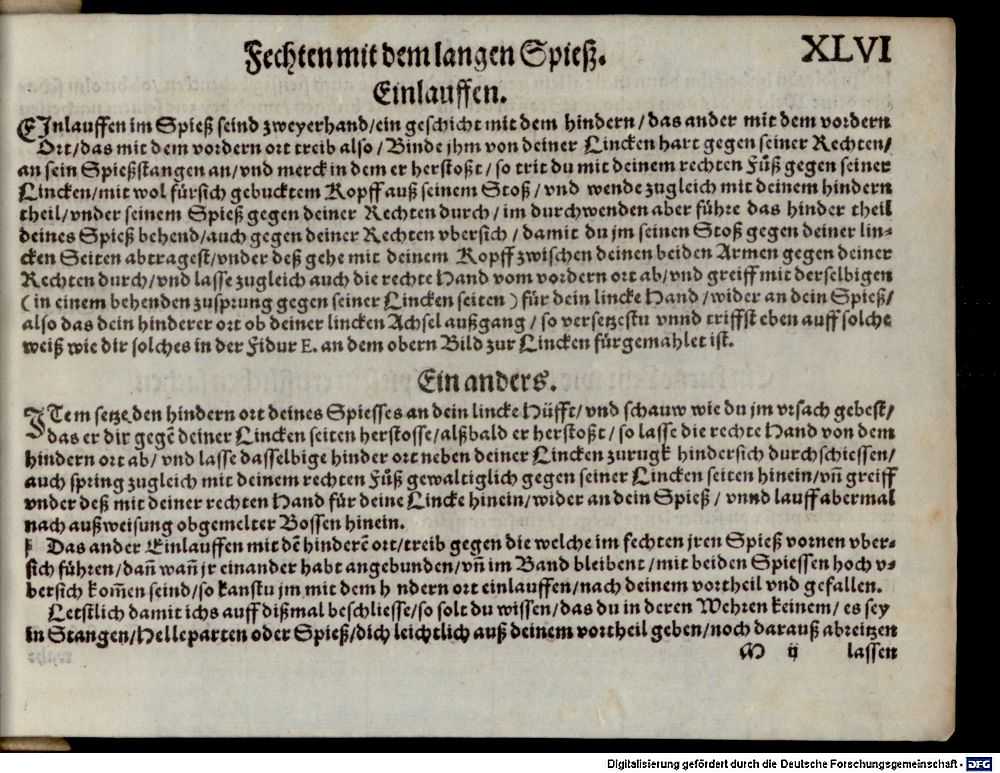 Fechten mit dem langen Spieß.
XLVI
Einlauffen.
EInlauffen im Spieß seind zweyerhand/ein geschicht mit dem hindern/das ander mit dem vordern
Ort/das mit dem vordern ort treib also/Binde jhm von deiner Lincken hart gegen seiner Rechten/
an sein Spießstangen an/vnd merck in dem er herstoßt/so trit du mit deinem rechten Fůß gegen seiner
Lincken/mit wol fürsich gebucktem Kopff auß seinem Stoß/vnd wende zugleich mit deinem hindern
theil/vnder seinem Spieß gegen deiner Rechten durch/im durchwenden aber führe das hinder theil
deines Spieß behend/auch gegen deiner Rechten vbersich/damit du jm seinen Stoß gegen deiner lin-
cken Seiten abtragest/vnder deß gehe mit deinem Kopff zwischen deinen beiden Armen gegen deiner
Rechten durch/vnd lasse zugleich auch die rechte Hand vom vordern ort ab/vnd greiff mit derselbigen
(in einem behenden zusprung gegen seiner Lincken seiten) für dein lincke Hand/wider an dein Spieß/
also das dein hinderer ort ob deiner lincken Achsel außgang/so versetzestu vnnd triffst eben auff solche
weiß wie dir solches in der Fidur E. an dem obern Bild zur Lincken fürgemahlet ist.
Ein anders.
ITem setze den hindern ort deines Spiesses an dein lincke Hüfft/vnd schauw wie du jm vrsach gebest/
das er dir gegē deiner Lincken seiten herstosse/alßbald er herstoßt/so lasse die rechte Hand von dem
hindern ort ab/vnd lasse dasselbige hinder ort neben deiner Lincken zurugk hindersich durchschiessen/
auch spring zugleich mit deinem rechten Fůß gewaltiglich gegen seiner Lincken seiten hinein/vñ greiff
vnder deß mit deiner rechten Hand für deine Lincke hinein/wider an dein Spieß/vnnd lauff abermal
nach außweisung obgemelter Bossen hinein.
Das ander Einlauffen mit dē hinderē ort/treib gegen die welche im fechten jren Spieß vornen vber-
sich führen/dañ wañ jr einander habt angebunden/vñ im Band bleibent/mit beiden Spiessen hoch v-
bersich kom̃en seind/so kanstu jm mit dem h ndern ort einlauffen/nach deinem vortheil vnd gefallen.
Letstlich damit ichs auff dißmal beschliesse/so solt du wissen/das du in deren Wehren keinem/es sey
in Stangen/Helleparten oder Spieß/dich leichtlich auß deinem vortheil geben/noch darauß abreitzen
M ij lassen
Digitalisierung gefördert durch die Deutsche Forschungsgemeinschaft - DFG